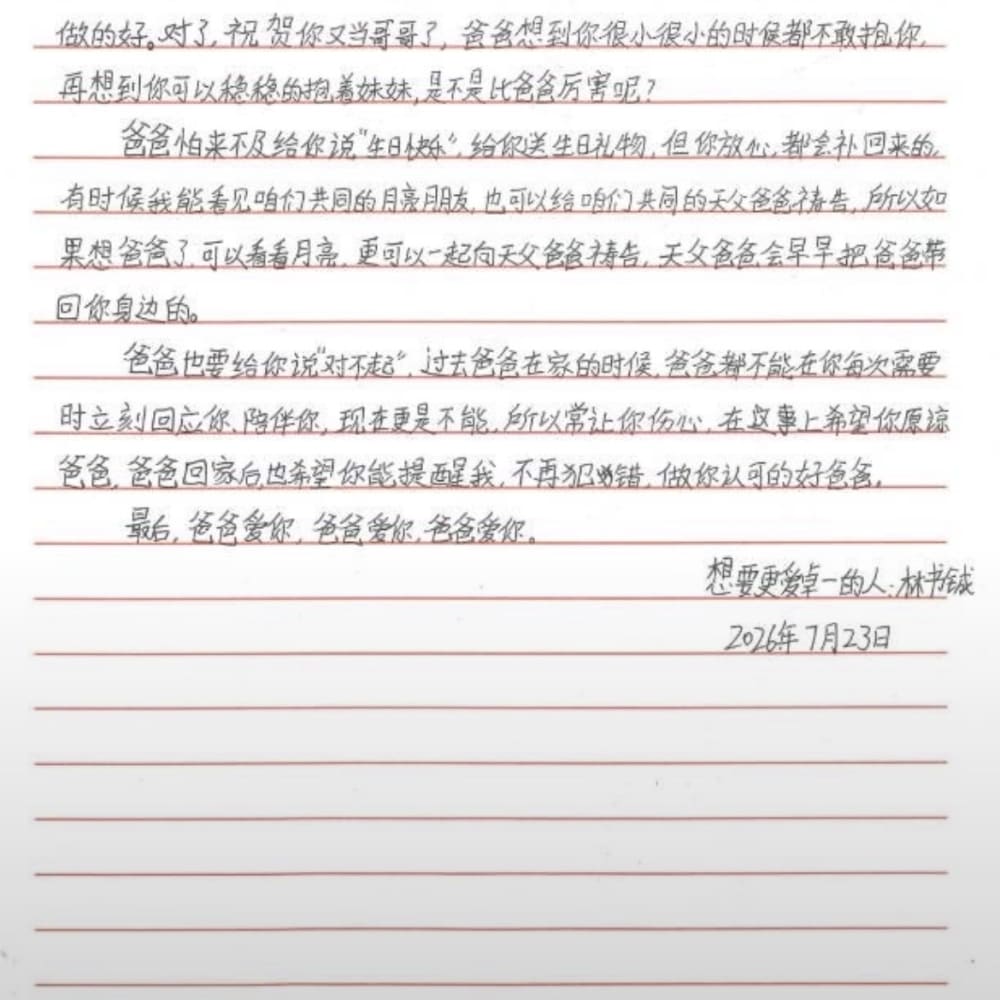 做的好。对了，祝贺你又当哥哥了，爸爸想到你很小很小的时候都不敢抱你，
再想到你可以稳稳的抱着妹妹，是不是比爸爸厉害呢？
爸爸怕来不及给你说“生日快乐”，给你送生日礼物，但你放心，都会补回来的，
有时候我能看见咱们共同的月亮朋友，也可以给咱们共同的天父爸爸祷告，所以如
果想爸爸了，可以看看月亮，更可以一起向天父爸爸祷告，天父爸爸会早早把爸爸带
回你身边的。
爸爸也要给你说“对不起”，过去爸爸在家的时候，爸爸都不能在你每次需要
时立刻回应你、陪伴你，现在更是不能，所以常让你伤心，在这事上希望你原谅
爸爸，爸爸回家后，也希望你能提醒我，不再犯错，做你认可的好爸爸。
最后，爸爸爱你，爸爸爱你，爸爸爱你。
想要更爱卓一的人：林书
2026年7月23日